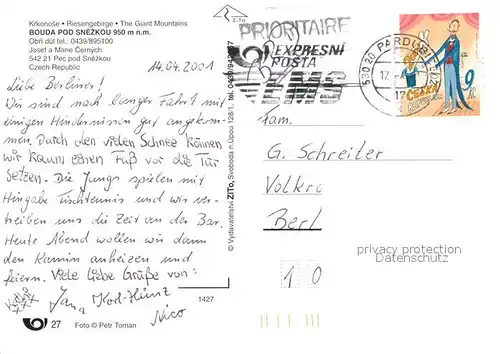 Krkonoše • Riesengebirge • The Giant Mountains
BOUDA POD SNĚŽKOU 950 m n.m.
Obří důl tel.: 0439/895100
Josef a Marie Černých
542 21 Pec pod Sněžkou
Czech Republic
14.04.2001
Liebe Berliner!
Wir sind nach langer Fahrt mit
einigen Hindernissen gut angekom-
men. Durch den vielen Schnee können
wir kaum einen Fuß vor die Tür
setzen. Die Jungs spielen mit
Hingabe Tischtennis und wir ver-
treiben uns die Zeit an der Bar.
Heute Abend wollen wir dann
den Kamin anheizen und
feiern. Viele liebe Grüße von:
Jana Karl-Heinz
Nico
1427
27 Foto © Petr Toman
ZiTo
© Vydavatelství ZITo, Svoboda n.Úpou 128/1, tel. 0439/
PRIORITAIRE
EXPRESNÍ
POŠTA
EMS
530 20 PARDUBICE
ČESKÁ
REPUBLIKA
9 Kč
Fam.
G. Schreiter
Volkra
Berl
10
privacy protection
Copyright